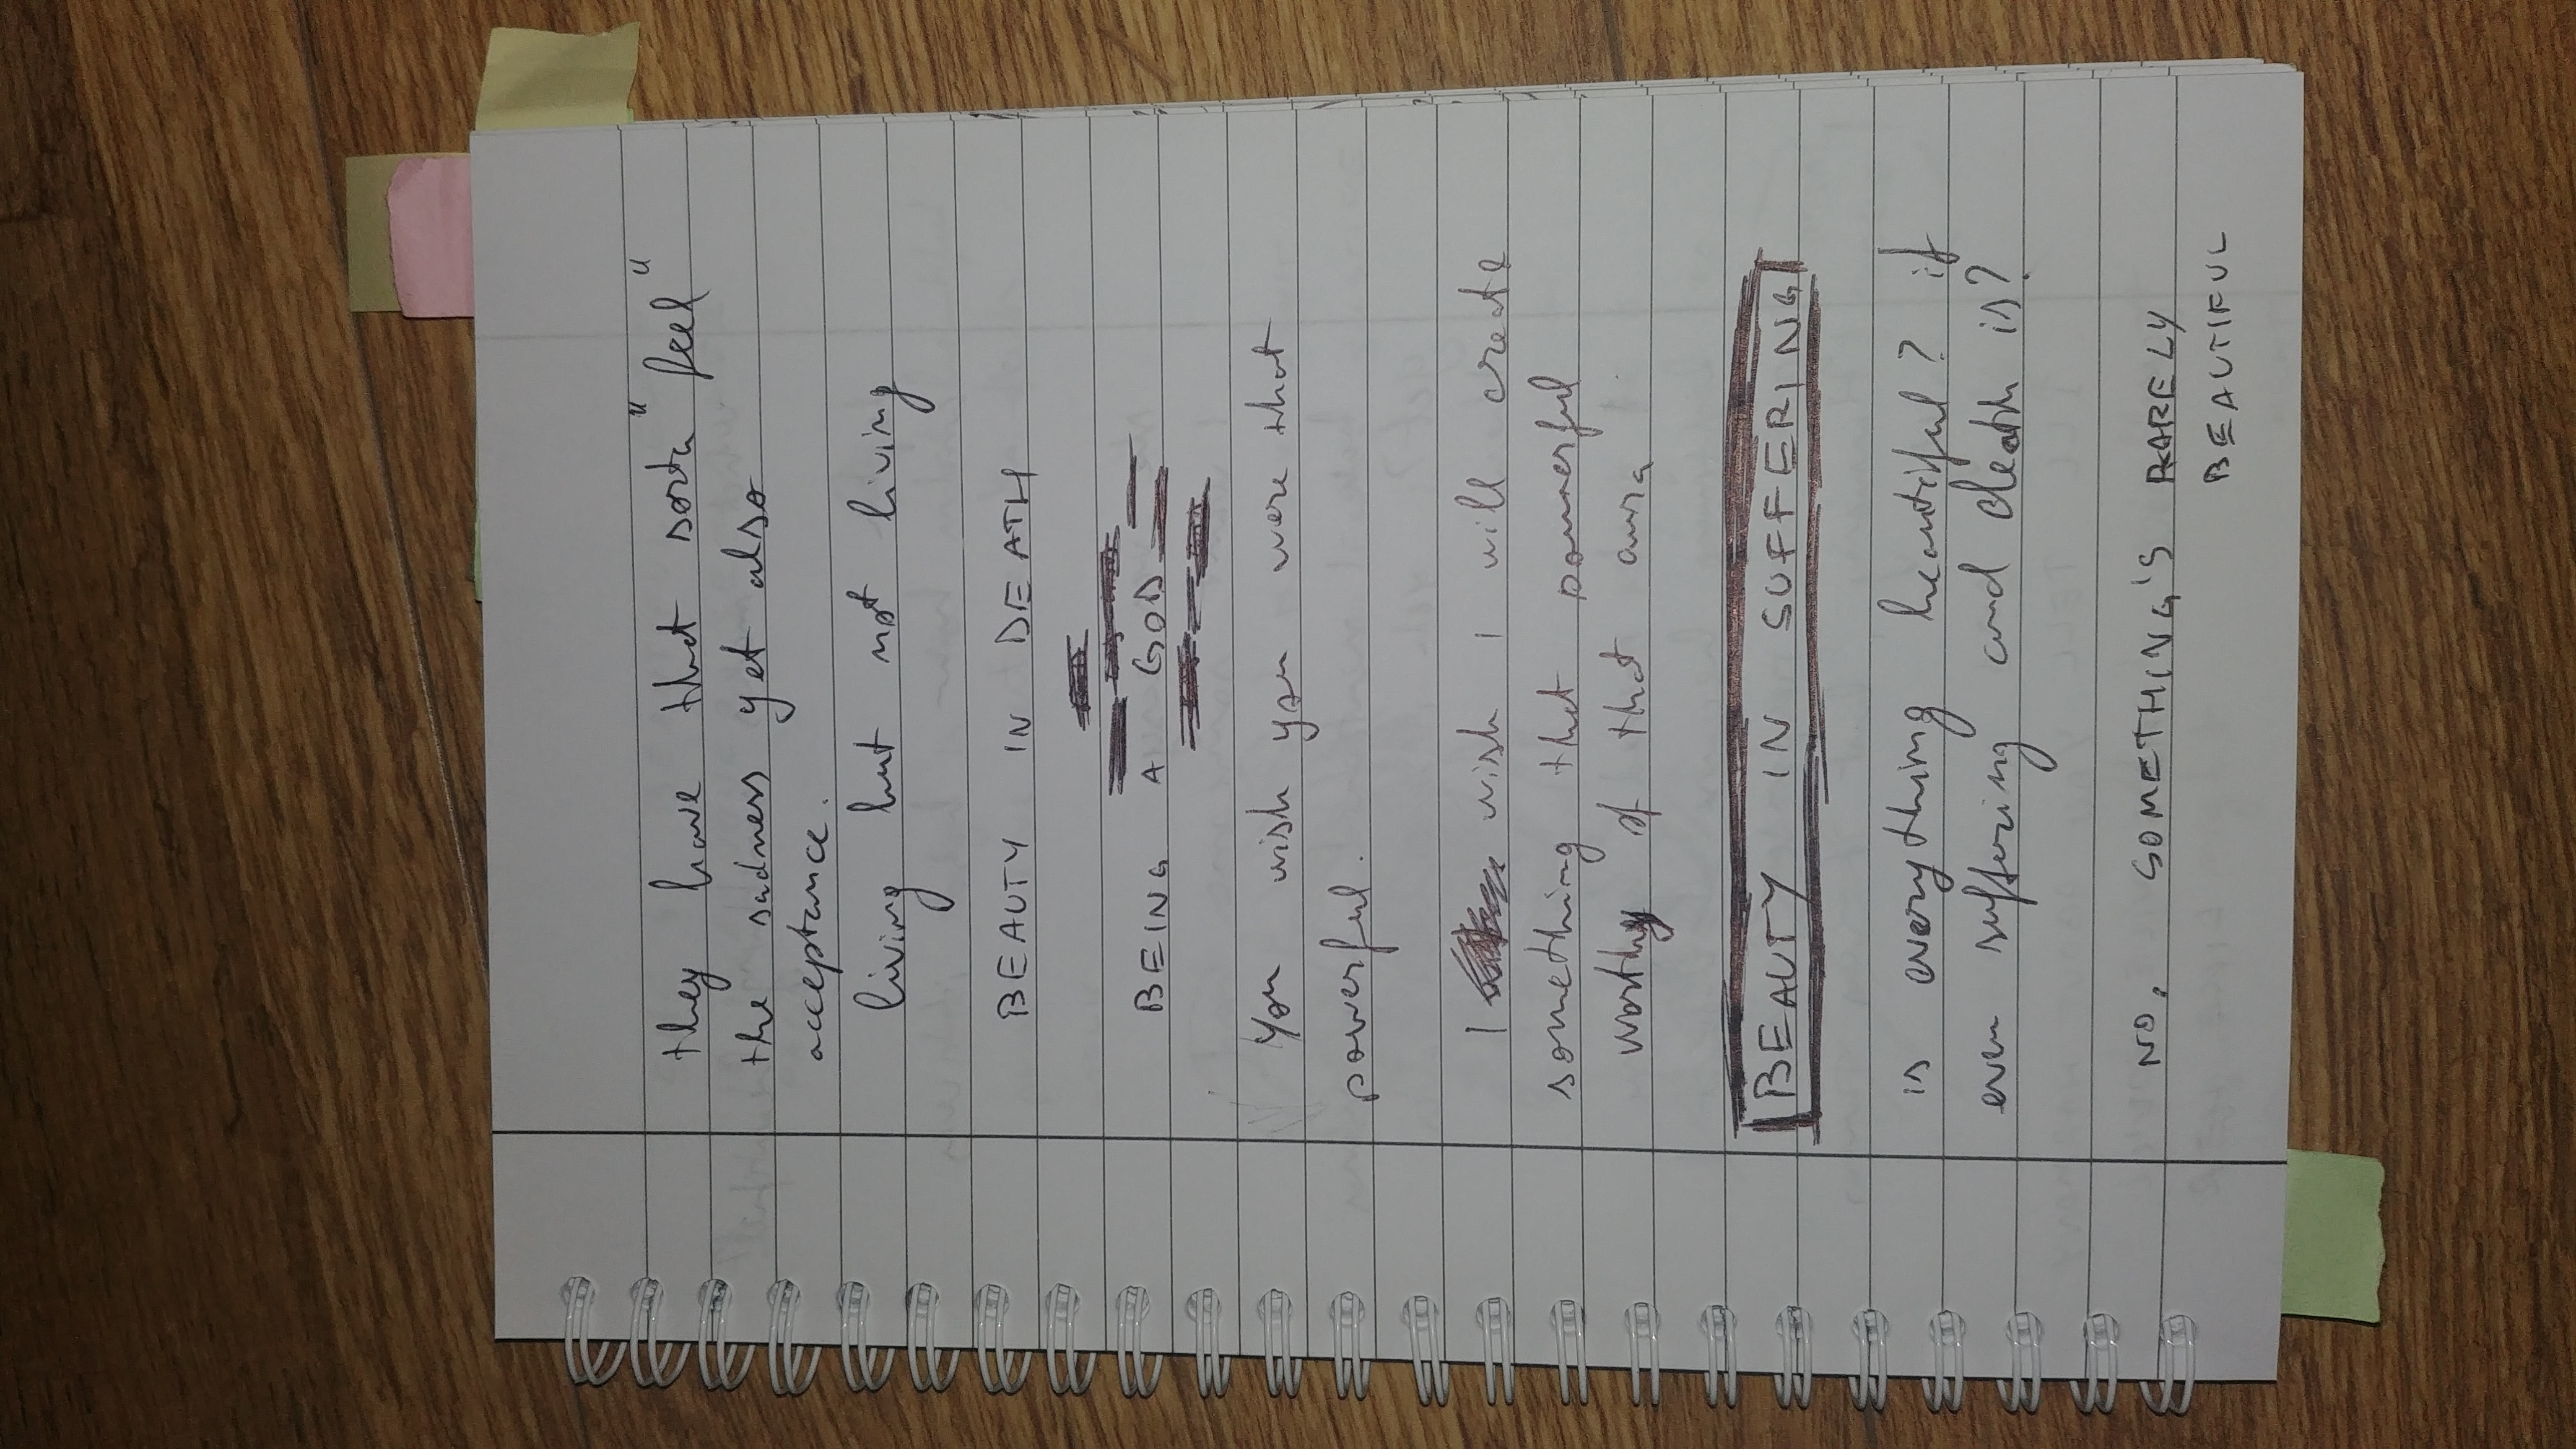 they have that sorta "feel"
the sadness yet also
acceptance.
living but not living
BEAUTY IN DEATH
BEING A GOD
You wish you were that
powerful.
I wish I will create
something that powerful
worthy of that aura
BEAUTY IN SUFFERING
is everything beautiful? if
even suffering and death is?
NO. SOMETHING'S RARELY
BEAUTIFUL